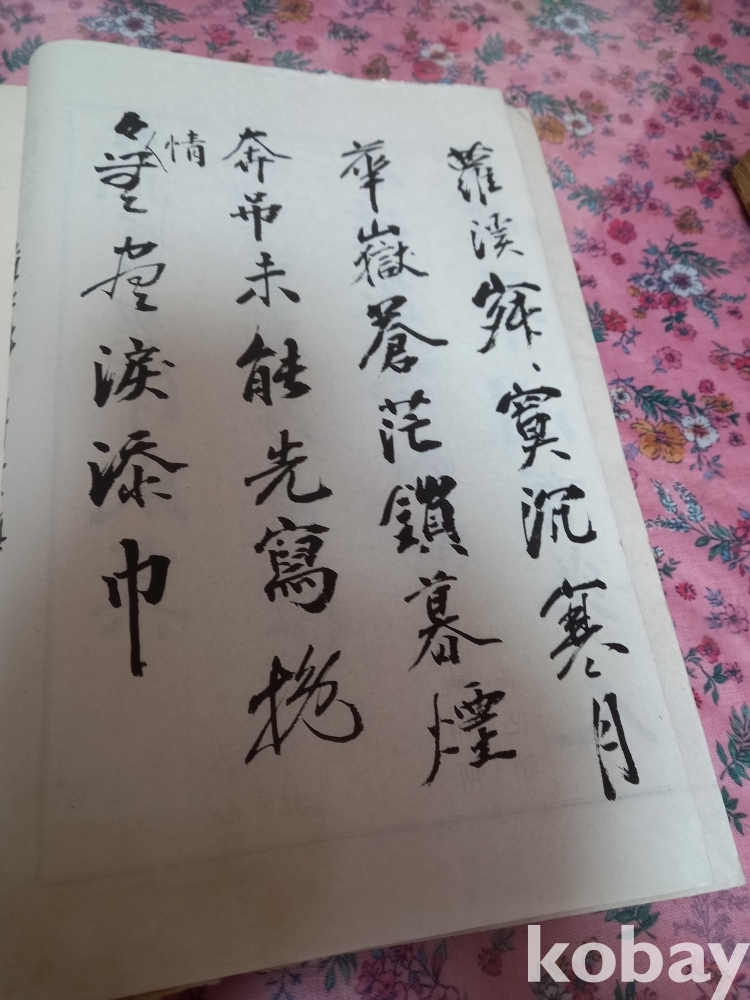 蘿溪寂寞沉寒月
華嶽蒼茫鎖暮煙
奔吊未能先寫挽
情々無盡淚添巾
kobay